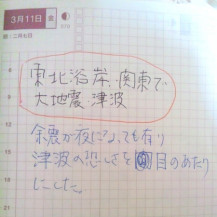 3月11日 金
旧:二月七日
8
東北沿岸、関東で
大地震、津波
余震が夜になっても有り
12
津波の恐しさを目のあたり
にした。
15
18